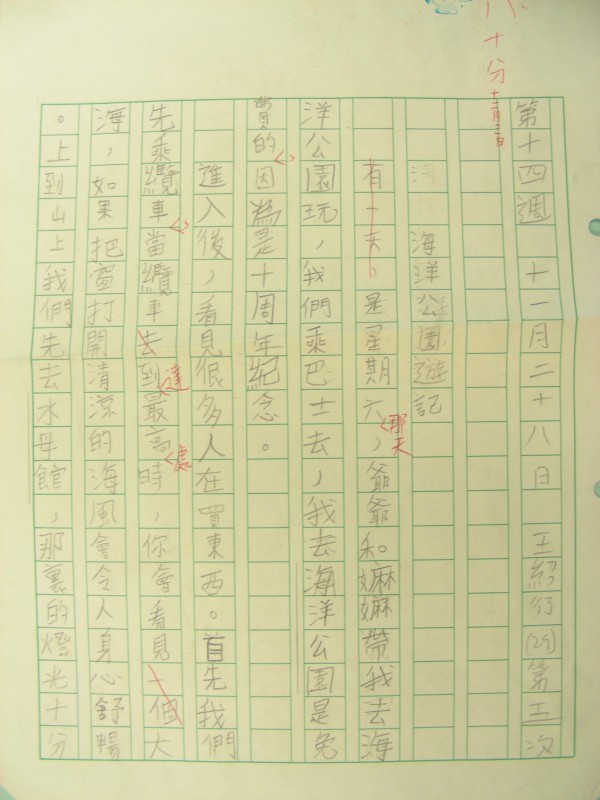 十分
第十四週 十一月二十八日 王紹行(29)第五次
海洋公園遊記
有一天,是星期六,爺爺和嫲嫲帶我去海
那天
洋公園玩,我們乘巴士去,我去海洋公園是免
費的因為是十周年紀念。
進入後,看見很多人在買東西。首先我們
先乘纜車當纜車去到最高時,你會看見一個大
達
處
海,如果把窗打開清涼的海風會令人身心舒暢
。上到山上我們先去水母館,那裏的燈光十分